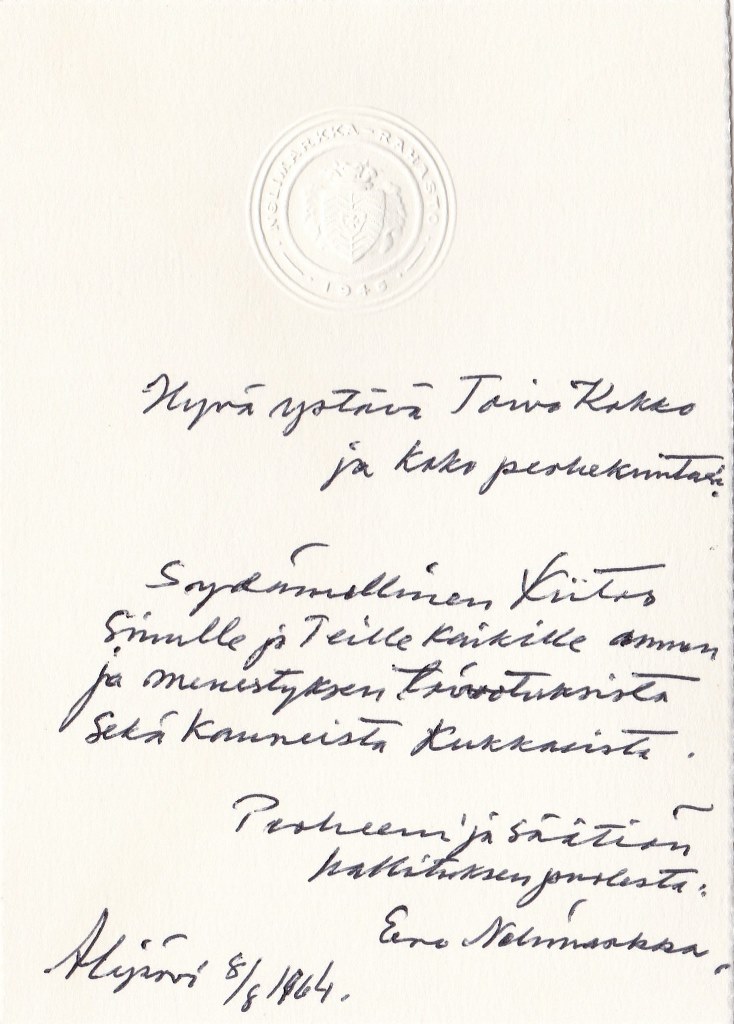 NELIMARKKA-RAHASTO
1945
Hyvä ystävä Toivo Kokko
ja koko perhekuntasi:
Sydämellinen Kiitos
Sinulle ja Teille kaikille onnen
ja menestyksen toivotuksista
sekä kauneista kukkasista.
Perheeni ja säätiön
hallituksen puolesta:
Eero Nelimarkka.
Alajärvi 8/8 1964.